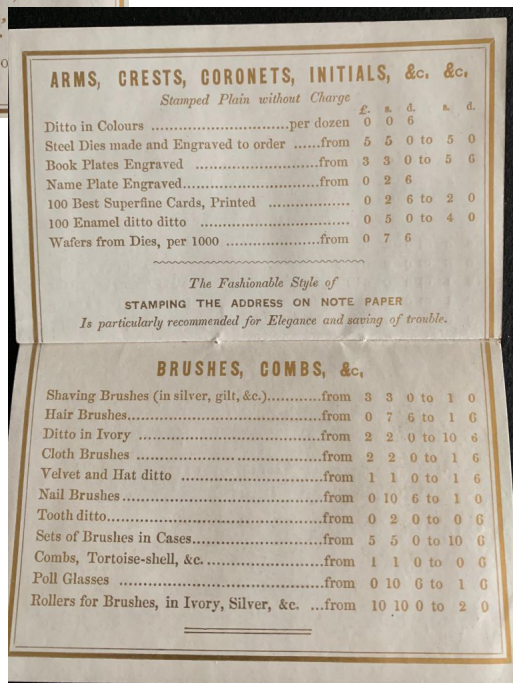 ARMS, CRESTS, CORONETS, INITIALS, &c, &c,
Stamped Plain without Charge
£. s. d. s. d.
Ditto in Colours ..............................per dozen 0 0 6
Steel Dies made and Engraved to order ......from 5 5 0 to 5 0
Book Plates Engraved ...........................from 3 3 0 to 5 6
Name Plate Engraved..............................from 0 2 6
100 Best Superfine Cards, Printed .................. 0 2 6 to 2 0
100 Enamel ditto ditto .................................... 0 5 0 to 4 0
Wafers from Dies, per 1000 .....................from 0 7 6
The Fashionable Style of
STAMPING THE ADDRESS ON NOTE PAPER
Is particularly recommended for Elegance and saving of trouble.
BRUSHES, COMBS, &c,
Shaving Brushes (in silver, gilt, &c.)............from 3 3 0 to 1 0
Hair Brushes...........................................from 0 7 6 to 1 6
Ditto in Ivory ........................................from 2 2 0 to 10 6
Cloth Brushes ........................................from 2 2 0 to 1 6
Velvet and Hat ditto ..............................from 1 1 0 to 1 6
Nail Brushes...........................................from 0 10 6 to 1 0
Tooth ditto..............................................from 0 2 0 to 0 6
Sets of Brushes in Cases...........................from 5 5 0 to 10 6
Combs, Tortoise-shell, &c.........................from 1 1 0 to 0 6
Poll Glasses ...........................................from 0 10 6 to 1 6
Rollers for Brushes, in Ivory, Silver, &c. ...from 10 10 0 to 2 0